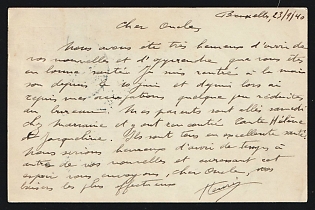 Bruxelles, 23/9/40
Cher Oncle,
Nous avons été très heureux d'avoir de
vos nouvelles et d'apprendre que vous êtes
en bonne santé. Je suis rentré à la maison
depuis le et depuis lors ai
repris mes occupations quelque peu réduites
du bureau. Mes parents sont allés samedi
chez et ont rencontré Tante Hélène
et Jacqueline. Ils sont tous en excellente santé.
Nous serions heureux d'avoir de temps à
autre de vos nouvelles et en cet
espoir nous envoyons, cher Oncle, nos
baisers les plus affectueux
Henri